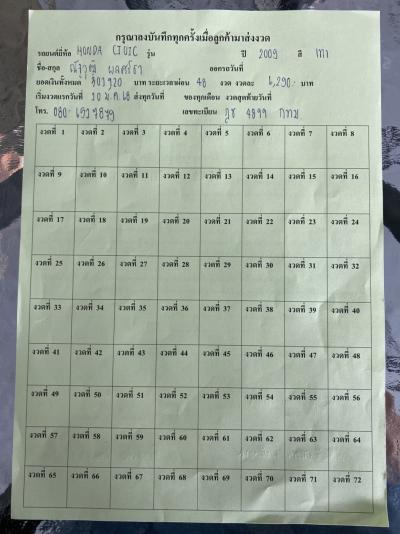 กรุณาลงบันทึกทุกครั้งเมื่อลูกค้ามาส่งงวด
รถยนต์ยี่ห้อ HONDA CIVIC รุ่น ปี 2009 สี เทา
ชื่อ-สกุล ณัฐวุฒิ ออกรถวันที่
ยอดเงินทั้งหมด 301920 บาท ระยะเวลาผ่อน 48 งวด งวดละ 6,290.- บาท
เริ่มงวดแรกวันที่ 10 ม.ค. 68 ส่งทุกวันที่ ของทุกเดือน งวดสุดท้ายวันที่
โทร. 080- เลขทะเบียน 4899 กทม.
งวดที่ 1 งวดที่ 2 งวดที่ 3 งวดที่ 4 งวดที่ 5 งวดที่ 6 งวดที่ 7 งวดที่ 8
งวดที่ 9 งวดที่ 10 งวดที่ 11 งวดที่ 12 งวดที่ 13 งวดที่ 14 งวดที่ 15 งวดที่ 16
งวดที่ 17 งวดที่ 18 งวดที่ 19 งวดที่ 20 งวดที่ 21 งวดที่ 22 งวดที่ 23 งวดที่ 24
งวดที่ 25 งวดที่ 26 งวดที่ 27 งวดที่ 28 งวดที่ 29 งวดที่ 30 งวดที่ 31 งวดที่ 32
งวดที่ 33 งวดที่ 34 งวดที่ 35 งวดที่ 36 งวดที่ 37 งวดที่ 38 งวดที่ 39 งวดที่ 40
งวดที่ 41 งวดที่ 42 งวดที่ 43 งวดที่ 44 งวดที่ 45 งวดที่ 46 งวดที่ 47 งวดที่ 48
งวดที่ 49 งวดที่ 50 งวดที่ 51 งวดที่ 52 งวดที่ 53 งวดที่ 54 งวดที่ 55 งวดที่ 56
งวดที่ 57 งวดที่ 58 งวดที่ 59 งวดที่ 60 งวดที่ 61 งวดที่ 62 งวดที่ 63 งวดที่ 64
งวดที่ 65 งวดที่ 66 งวดที่ 67 งวดที่ 68 งวดที่ 69 งวดที่ 70 งวดที่ 71 งวดที่ 72